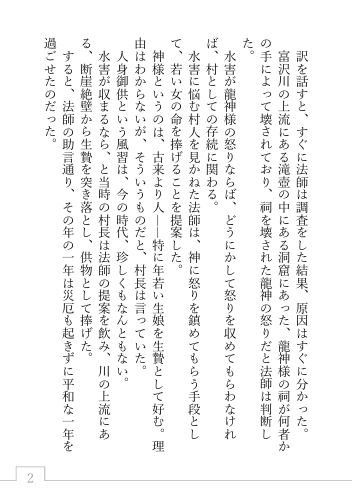 訳を話すと、すぐに法師は調査をした結果、原因はすぐに分かった。
富沢川の上流にある滝壺の中にある洞窟にあった、龍神様の祠が何者か
の手によって壊されており、祠を壊された龍神の怒りだと法師は判断し
た。
水害が龍神様の怒りならば、どうにかして怒りを収めてもらわなけれ
ば、村としての存続に関わる。
水害に悩む村人を見かねた法師は、神に怒りを鎮めてもらう手段とし
て、若い女の命を捧げることを提案した。
神様というのは、古来より人――特に年若い生娘を生贄として好む。理
由はわからないが、そういうものだと、村長は言っていた。
人身御供という風習は、今の時代、珍しくもなんともない。
水害が収まるなら、と当時の村長は法師の提案を飲み、川の上流にあ
る、断崖絶壁から生贄を突き落とし、供物として捧げた。
すると、法師の助言通り、その年の一年は災厄も起きずに平和な一年を
過ごせたのだった。
2